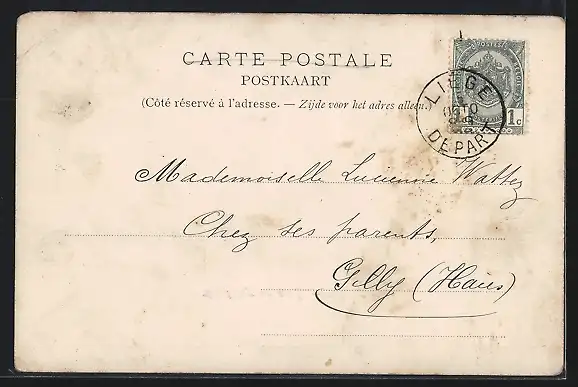 CARTE POSTALE
POSTKAART
(Côté réservé à l'adresse. — Zijde voor het adres alleen.)
POSTES
1 c
LIÈGE
DÉPART
Mademoiselle Lucienne Wattez
Chez ses parents,
Gilly (Hain)